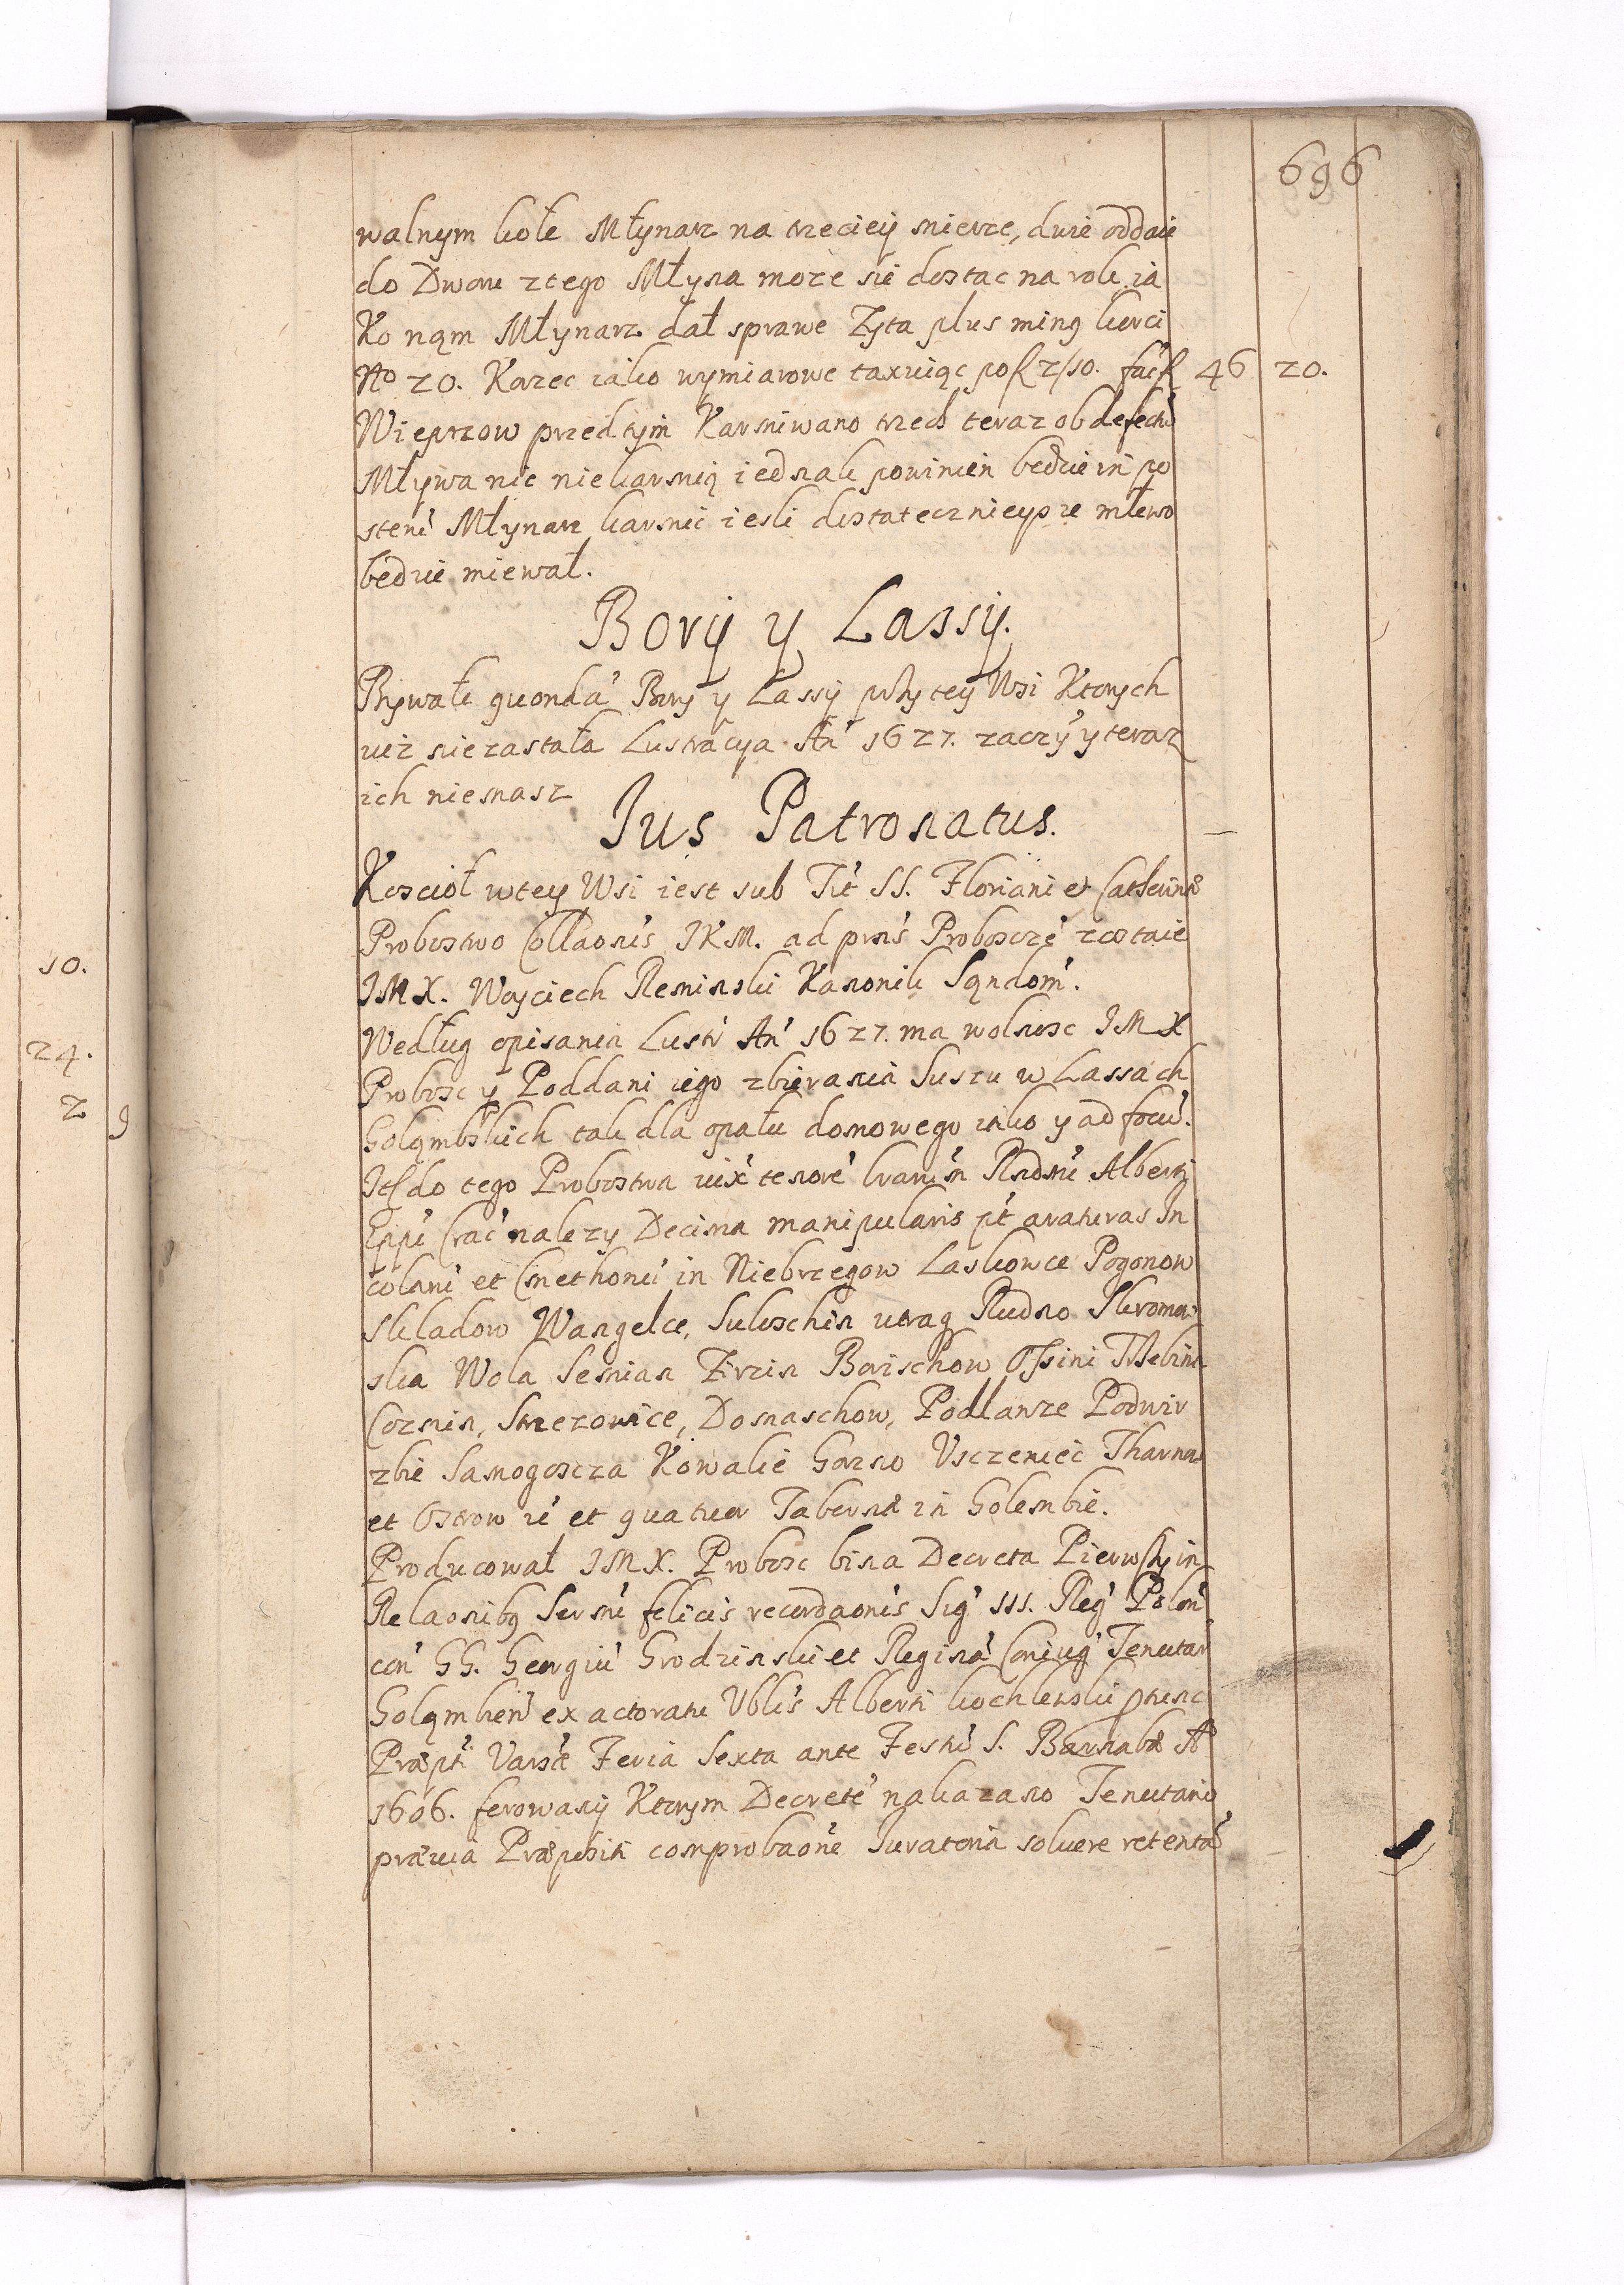 696
walnym kole Młynarz na trzeciey mierze, dwie oddaie
do Dworu z tego Młyna może się dostac na rok ia
Ko nąm Młynarz dał sprawe Zyta plus minq korci
No 20. Korzec iako wymiarowe taxuiąc po fl 2/10. fac fl 46 20.
Wieprzow przedtym Karmiwano trzech teraz ob defectu
Mływa nic nie karmią iednak powinien bedzie in po
steru Młynarz karmic iesli dostatecznieysze mlewo
bedzie miewał.
Bory y Lassy.
Bywałe quonda Bory y Lassy przy tey Wsi Ktorych
iuż nie zastała Lustracya An 1627. zaczy y teraz
ich niemasz
Jus Patronatus.
Kosciół w tey Wsi iest sub Tit SS. Floriani et Catherinæ
Probostwo Collaonis JKM. ad prns Proboszcze zostaie
JMX. Woyciech Reminski Kanonik Sąndom.
Według opisania Lustr An 1627. ma wolnosc JMX
Probosc y Poddani iego zbierania Suszu w Lassach
Goląmbskich tak dla opału domowego iako y ad focu.
Itl do tego Probostwa iux tenore Alberti
Eppi Crac nalezy Decima manipularis pt araturas In
colaru et Cmethonu in Niebrzegow Laskowce Pogonow
Skladow Wangelce, Suloschin utraq Rudno Skromow
ska Wola Senian Zirzin Borischow Ossini Thlebine
Cozmin, Strezowice, Domaschow, Podlanze Podwir
zbie Samogoscza Kowalie Gozno Usczeniec Tharnow
et Ostrow ie et quatuor Tabernæ in Golembie.
Producował JMX. Probosc bina Decreta Pierwszy in
Relaonibq Sermi felicis recordaonis Sig III. Reg Polon
con GG. Georgiu Grodzinski et Regina Coniug Tenutar
Goląmbien ex actoratu Vblis Alberti kochlewski ptunc
Præpti Varsæ Feria Sexta ante Festu S. Barnabæ Ao
1606. ferowany Ktorym Decrete nakazano Tenutario
prævia Præpositi comprobaone Juratoria soluere retenta
10.
24.
2 9